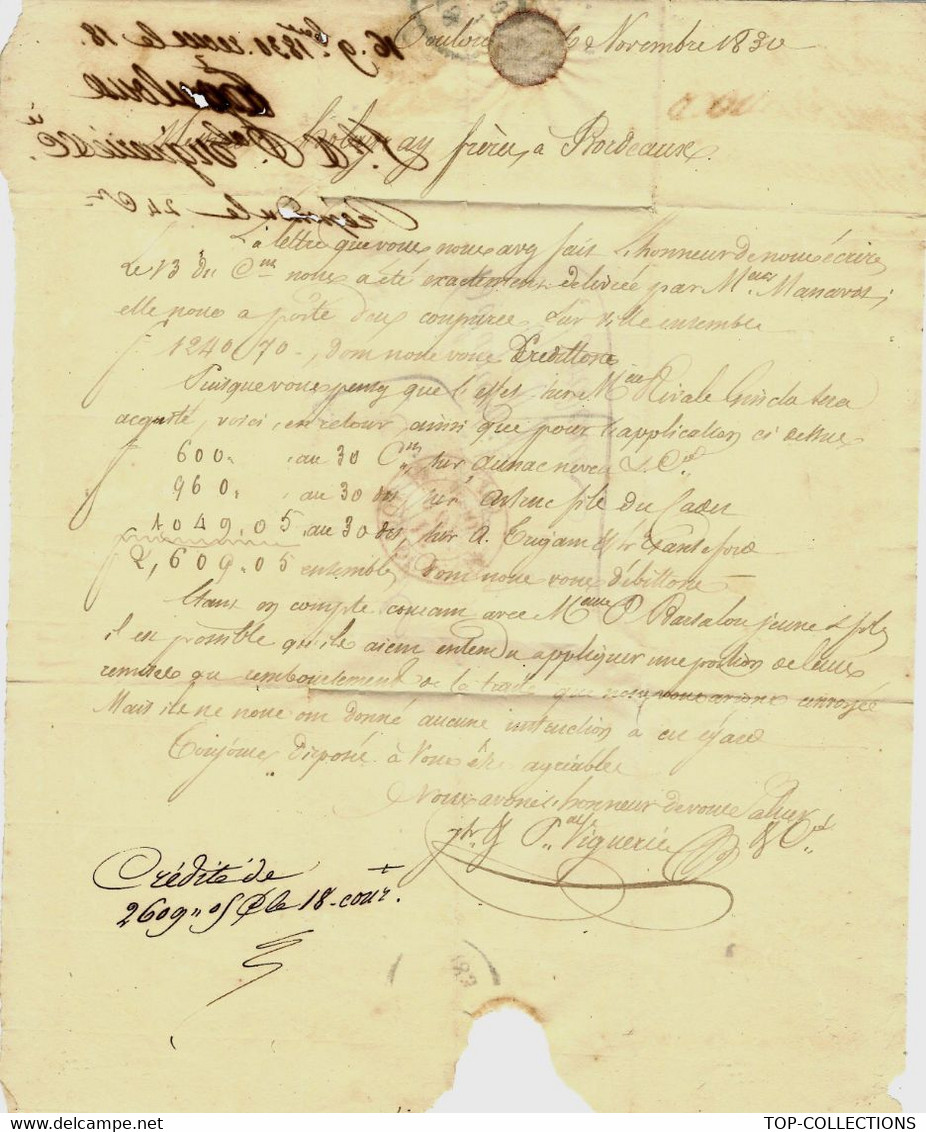 16 9bre 1830. reçue le 18.
Toulouse
Viguerie & Cie
Répondu le 24 Ct
Toulouse 16 Novembre 1830
frères à Bordeaux
La lettre que vous nous avez fait l'honneur de nous écrire
Le 13 du Ct nous a été exactement délivrée par Mrs Manavit;
elle nous a porté deux coupures sur ville ensemble
f 1240.70 , dont nous vous Créditons
Puisque vous pensez que l'effet sur Mrs Rivals Guiscla sera
acquité, voici, en retour, ainsi que pour l'application ci dessus
f 600 " au 30 Ct sur Aunac neveu & Ce
960 " au 30 dit sur Astruc fils du Cadet
1049.05 au 30 dit sur A.
f 2,609.05 ensemble, dont nous vous débittons
Etant en compte courant avec Mrs P Barsalou jeune & fils
il est possible qu'ils aient entendu appliquer une portion de leurs
remises au remboursement de la traite que nous vous avions envoyée
Mais ils ne nous ont donné aucune instruction à cet égard
Toujours disposés à vous être agréable
Nous avons l'honneur de vous saluer
Viguerie & Ce
Crédité de
2609 " 05 le 18 cour.t
183
TOP-COLLECTIONS